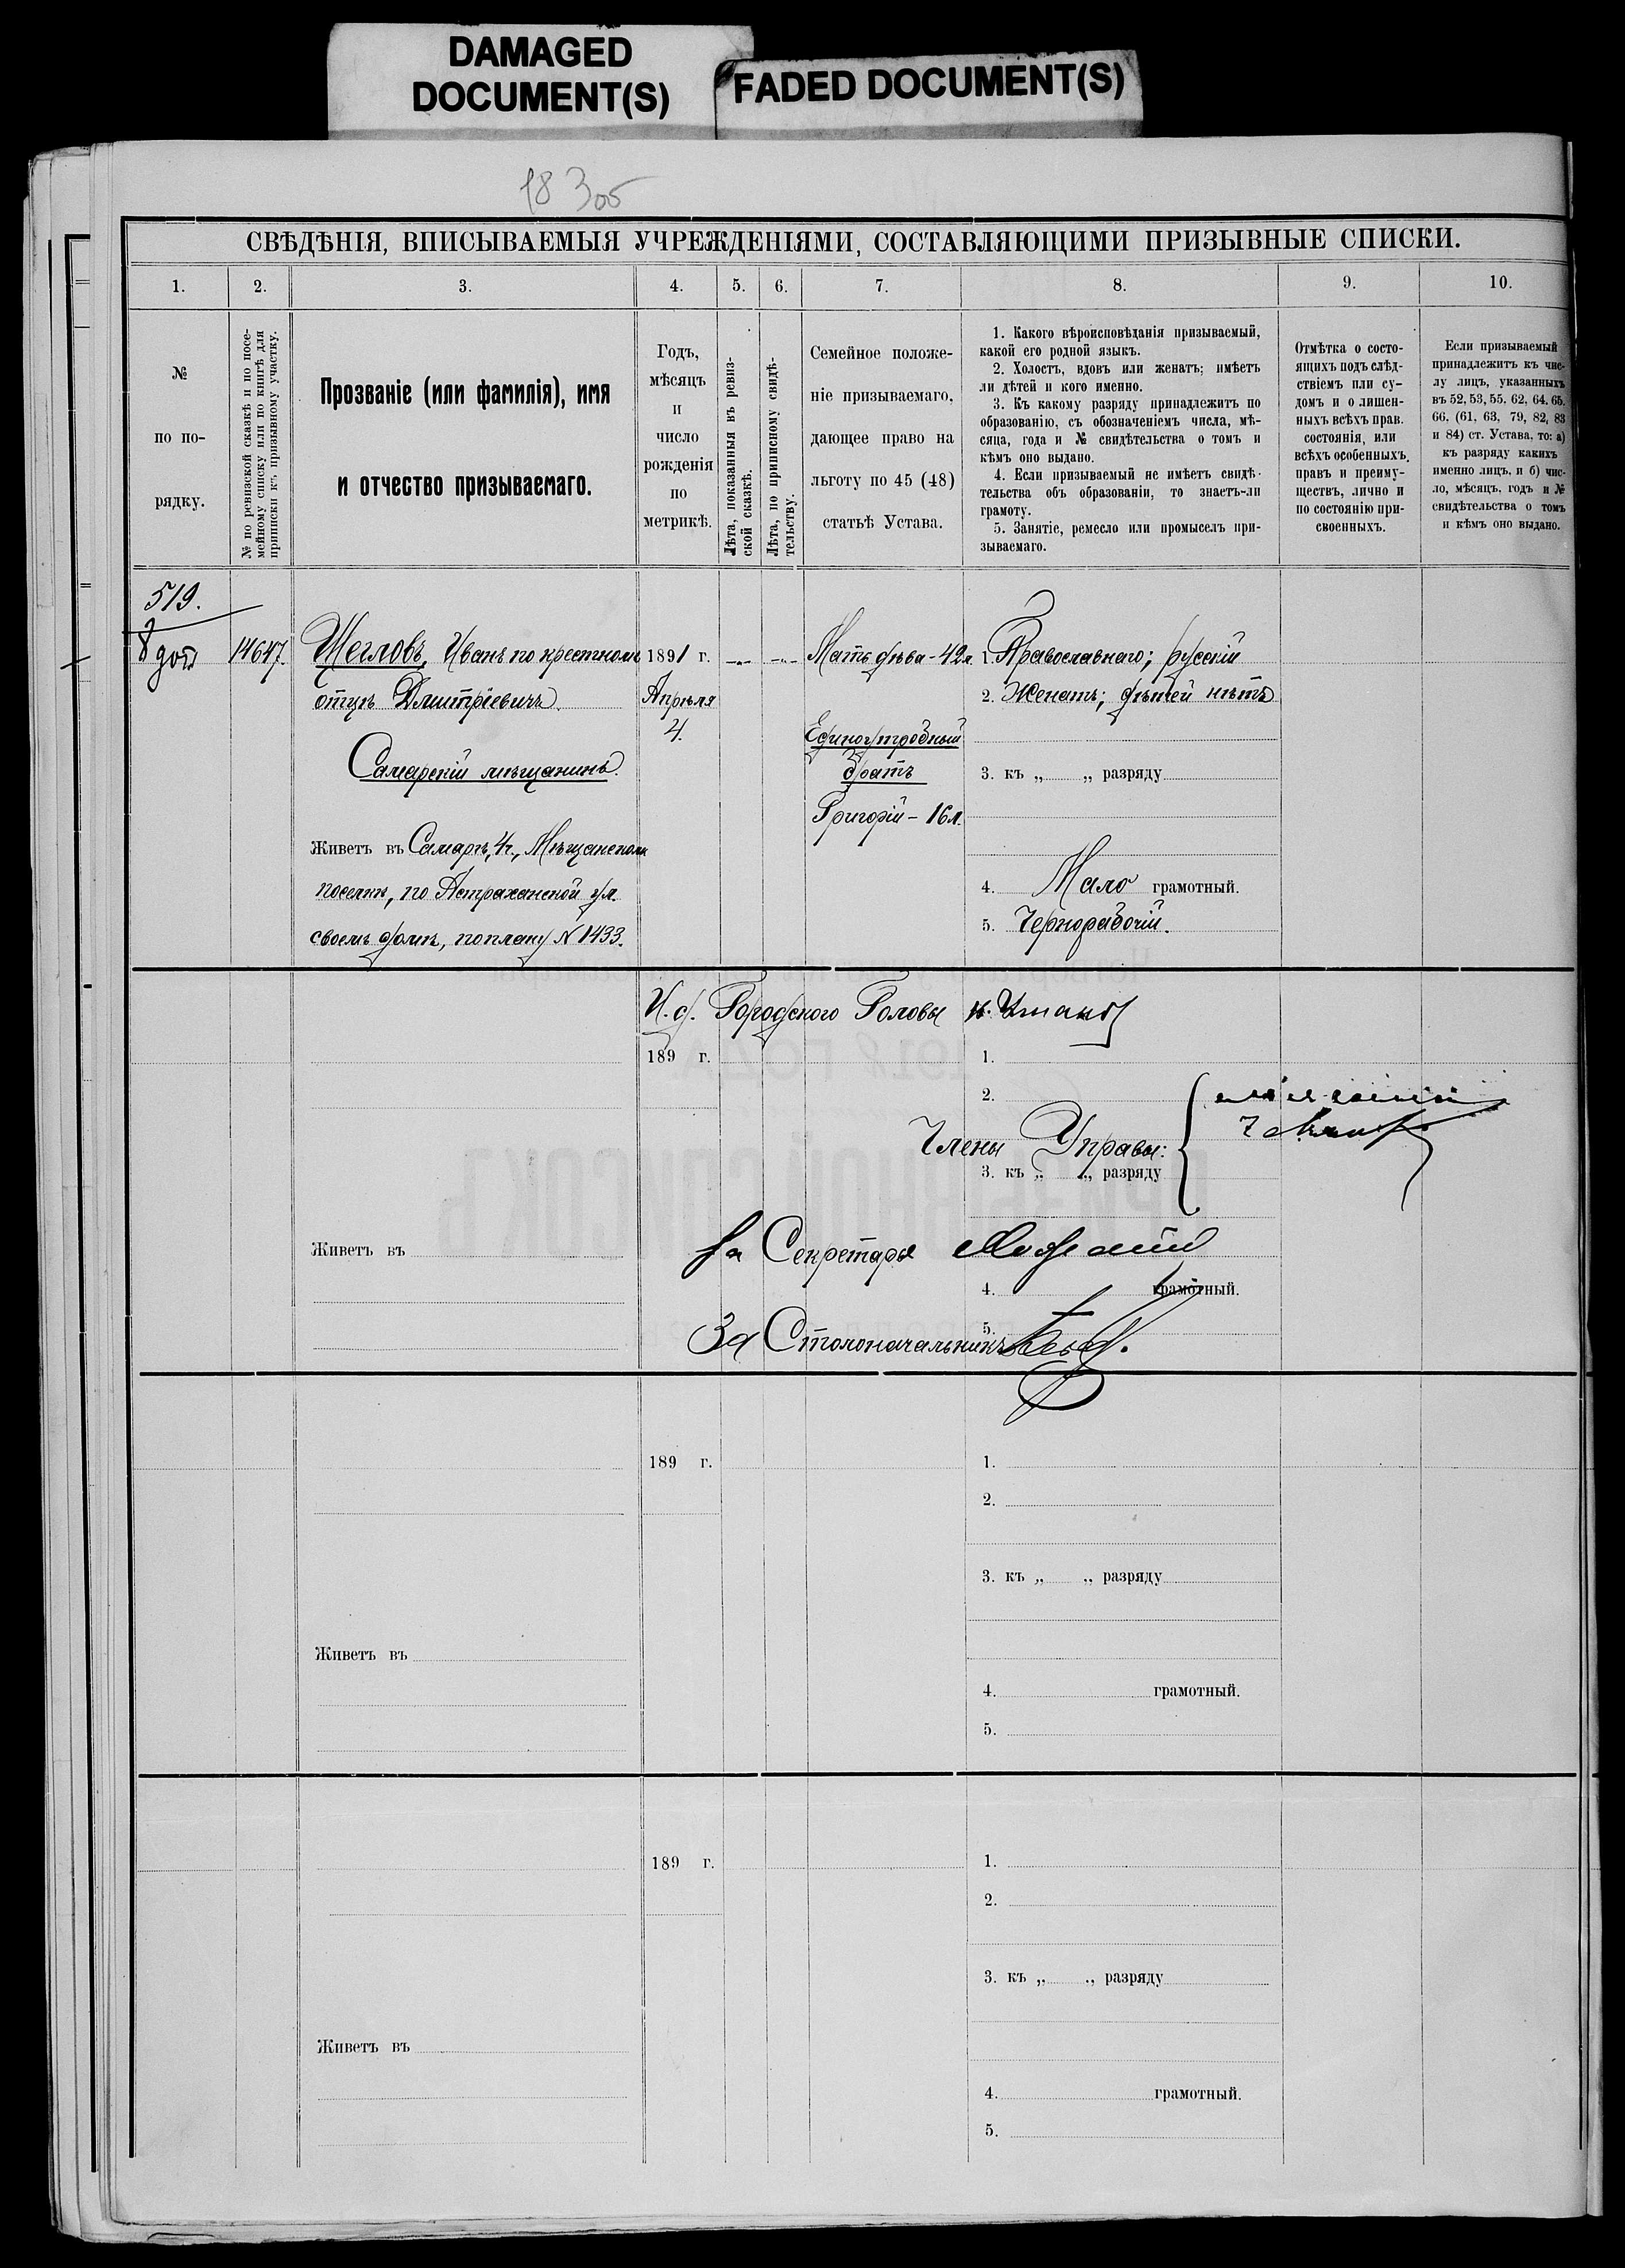 DAMAGED
DOCUMENT(S)
FADED DOCUMENT(S)
183об
СВѢДѢНІЯ, ВПИСЫВАЕМЫЯ УЧРЕЖДЕНІЯМИ, СОСТАВЛЯЮЩИМИ ПРИЗЫВНЫЕ СПИСКИ.
1.
2.
3.
4.
5.
6.
7.
8.
9.
10.
№
по по-
рядку.
№ по ревизской сказкѣ и по посе-
мейному списку или по книгѣ для
приписки къ призывному участку.
Прозваніе (или фамилія), имя
и отчество призываемаго.
Годъ,
мѣсяцъ
и
число
рожденія
по
метрикѣ.
Лѣта, показанныя въ ревиз-
ской сказкѣ.
Лѣта, по приписному свидѣ-
тельству.
Семейное положе-
ніе призываемаго,
дающее право на
льготу по 45 (48)
статьѣ Устава.
1. Какого вѣроисповѣданія призываемый,
какой его родной языкъ.
2. Холостъ, вдовъ или женатъ; имѣетъ
ли дѣтей и кого именно.
3. Къ какому разряду принадлежитъ по
образованію, съ обозначеніемъ числа, мѣ-
сяца, года и № свидѣтельства о томъ и
кѣмъ оно выдано.
4. Если призываемый не имѣетъ свидѣ-
тельства объ образованіи, то знаетъ-ли
грамоту.
5. Занятіе, ремесло или промыселъ при-
зываемаго.
Отмѣтка о состо-
ящихъ подъ слѣд-
ствіемъ или су-
домъ и о лишен-
ныхъ всѣхъ прав.
состоянія, или
всѣхъ особенныхъ
правъ и преиму-
ществъ, лично и
по состоянію при-
своенныхъ.
Если призываемый
принадлежитъ къ чис-
лу лицъ, указанныхъ
въ 52, 53, 55, 62, 64, 65,
66, (61, 63, 79, 82, 83
и 84) ст. Устава, то: а)
къ разряду какихъ
именно лицъ, и б) чис-
ло, мѣсяцъ, годъ и №
свидѣтельства о томъ
и кѣмъ оно выдано.
519.
14647.
Щегловъ, Иванъ по крестному
отцу Дмитріевичъ.
Самарскій мѣщанинъ.
Живетъ въ Самарѣ, 4ч., Мѣщанскомъ
поселкѣ, по Астраханской ул.
своемъ домѣ, по плану N 1433.
1891 г.
Апрѣля
4.
Мать дѣва - 42л.
Единоутробный
братъ
Григорій - 16л.
1. Православнаго; русскій
2. Женатъ; дѣтей нѣтъ
3. къ „ „ разряду
4. Мало грамотный.
5. Чернорабочій.
И. д. Городского Головы
189 г.
1.
2.
Члены Управы:
3. къ „ „ разряду
Живетъ въ
За Секретаря
4. грамотный.
5.
За Столоначальника
189 г.
1.
2.
3. къ „ „ разряду
Живетъ въ
4. грамотный.
5.
189 г.
1.
2.
3. къ „ „ разряду
Живетъ въ
4. грамотный.
5.